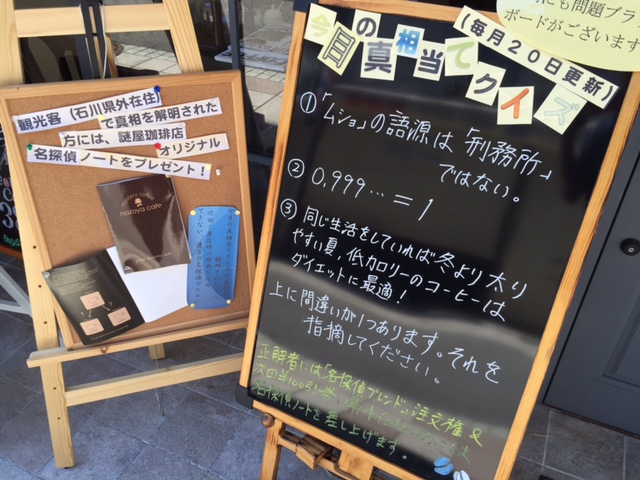 観光客（石川県外在住）
で真相を解明された
方には、謎屋珈琲店
オリジナル
名探偵ノートをプレゼント！
nazoya cafe
にも問題プラ
ボードがございます
今日の真相当てクイズ
（毎月20日更新）
①「ムショ」の語源は「刑務所」
ではない。
② 0.999… = 1
③ 同じ生活をしていれば冬より太り
やすい夏。低カロリーのコーヒーは
ダイエットに最適！
上に間違いが1つあります。それを
指摘してください。
正解者には「名探偵ブレンド」注文権 &
次回
名探偵ノートを差し上げます。